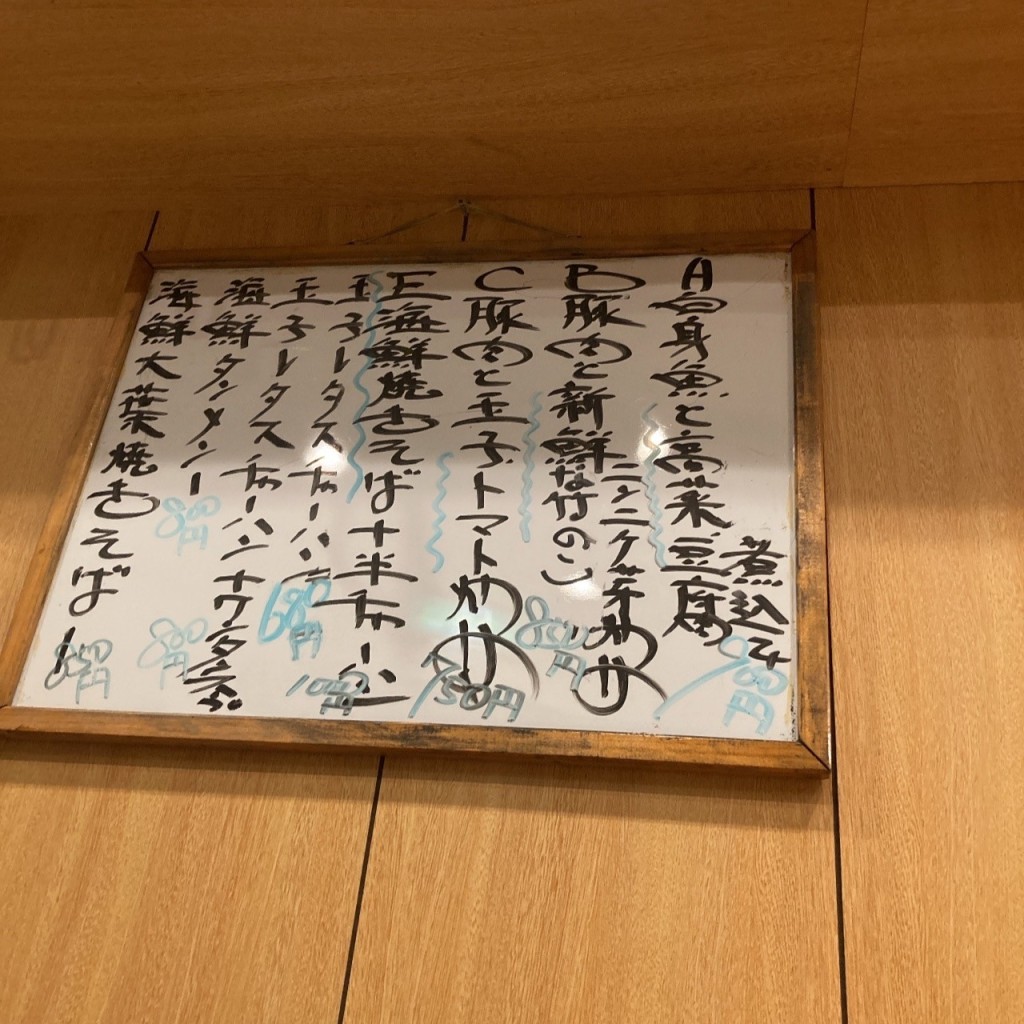 A白身魚と高菜豆腐
煮込み
B豚肉と新鮮な竹のこ
ニンニク芽炒め
850円
C豚肉と玉子トマト炒め
750円
E海鮮焼きそば+半チャーハン
玉子レタスチャーハン
680円
玉子レタスチャーハン
海鮮タンメン
800円
海鮮大葉焼きそば
850円